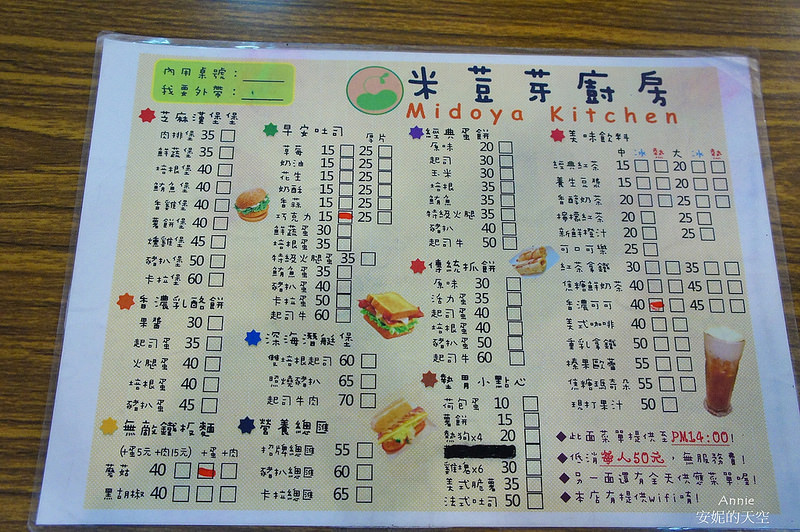 內用桌號：
我要外帶：
米荳芽廚房
Midoya Kitchen
芝麻漢堡堡
肉排堡 35
鮮蔬堡 35
培根堡 40
鮪魚堡 40
香雞堡 40
薯餅堡 40
燻雞堡 45
豬扒堡 50
卡拉堡 60
香濃乳酪餅
果醬 30
起司蛋 35
火腿蛋 40
培根蛋 40
豬扒蛋 45
無敵鐵板麵
(+蛋5元 +肉15元) +蛋 +肉
蘑菇 40
黑胡椒 40
早安吐司 厚片
草莓 15 25
奶油 15 25
花生 15 25
奶酥 15 25
香蒜 15 25
巧克力 15 25
鮮蔬蛋 30
培根蛋 35
特級火腿蛋 35
鮪魚蛋 35
豬扒蛋 40
卡拉蛋 50
起司牛 60
深海潛艇堡
雙培根起司 60
照燒豬扒 65
起司牛肉 70
營養總匯
招牌總匯 55
豬扒總匯 60
卡拉總匯 65
經典蛋餅
原味 20
起司 30
玉米 30
培根 35
鮪魚 35
特級火腿 35
豬扒 40
起司牛 50
傳統抓餅
原味 30
活力蛋 35
起司蛋 40
培根蛋 40
豬扒蛋 50
起司牛 60
熱胃小點心
荷包蛋 10
薯餅 15
熱狗x4 20
雞塊x6 30
美式脆薯 35
法式吐司 50
美味飲料
中 冰 熱 大 冰 熱
經典紅茶 15 20
養生豆漿 15 20
香醇奶茶 20 25
檸檬紅茶 20 25
新鮮橙汁 20 25
可口可樂 25
紅茶拿鐵 30 35
焦糖鮮奶茶 40 45
香濃可可 40 45
美式咖啡 40
重乳拿鐵 50
榛果歐蕾 55
焦糖瑪奇朵 55
現打果汁 50
◆此面菜單提供至PM14:00!
◆低消每人50元，無服務費!
◆另一面還有全天供應菜單喔!
◆本店有提供wifi唷!
Annie
安妮的天空